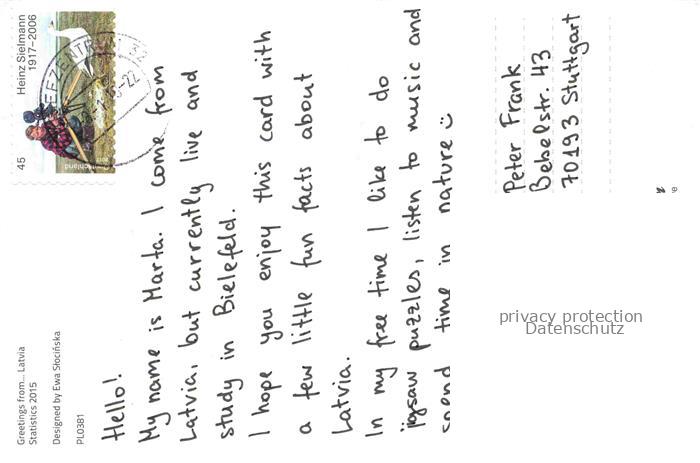 Greetings from... Latvia
Statistics 2015
Designed by Ewa Słocińska
PL0381
Hello!
My name is Marta. I come from
Latvia, but currently live and
study in Bielefeld.
I hope you enjoy this card with
a few little fun facts about
Latvia.
In my free time I like to do
jigsaw puzzles, listen to music and
spend time in nature ☺
Heinz Sielmann
1917–2006
45
Deutschland
Peter Frank
Bebelstr. 43
70193 Stuttgart
privacy protection
Datenschutz